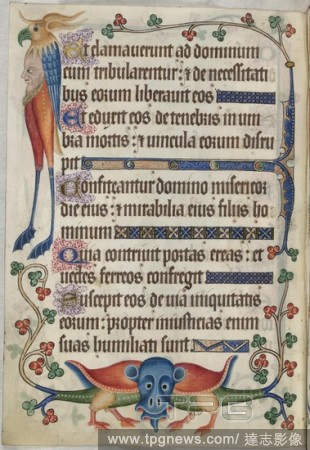 Et clamaverunt ad dominum
cum tribularentur: & de necessitati
bus eorum liberavit eos
Et eduxit eos de tenebris in um
bra mortis: & vincula eorum disru
pit
Confiteantur domino misericor
die eius: & mirabilia eius filiis ho
minum
Quia contrivit portas ereas: et
vectes ferreos confregit
Suscepit eos de via iniquitatis
eorum: propter iniusticias enim
suas humiliati sunt
TPG
www.tpgnews.com/ 達志影像